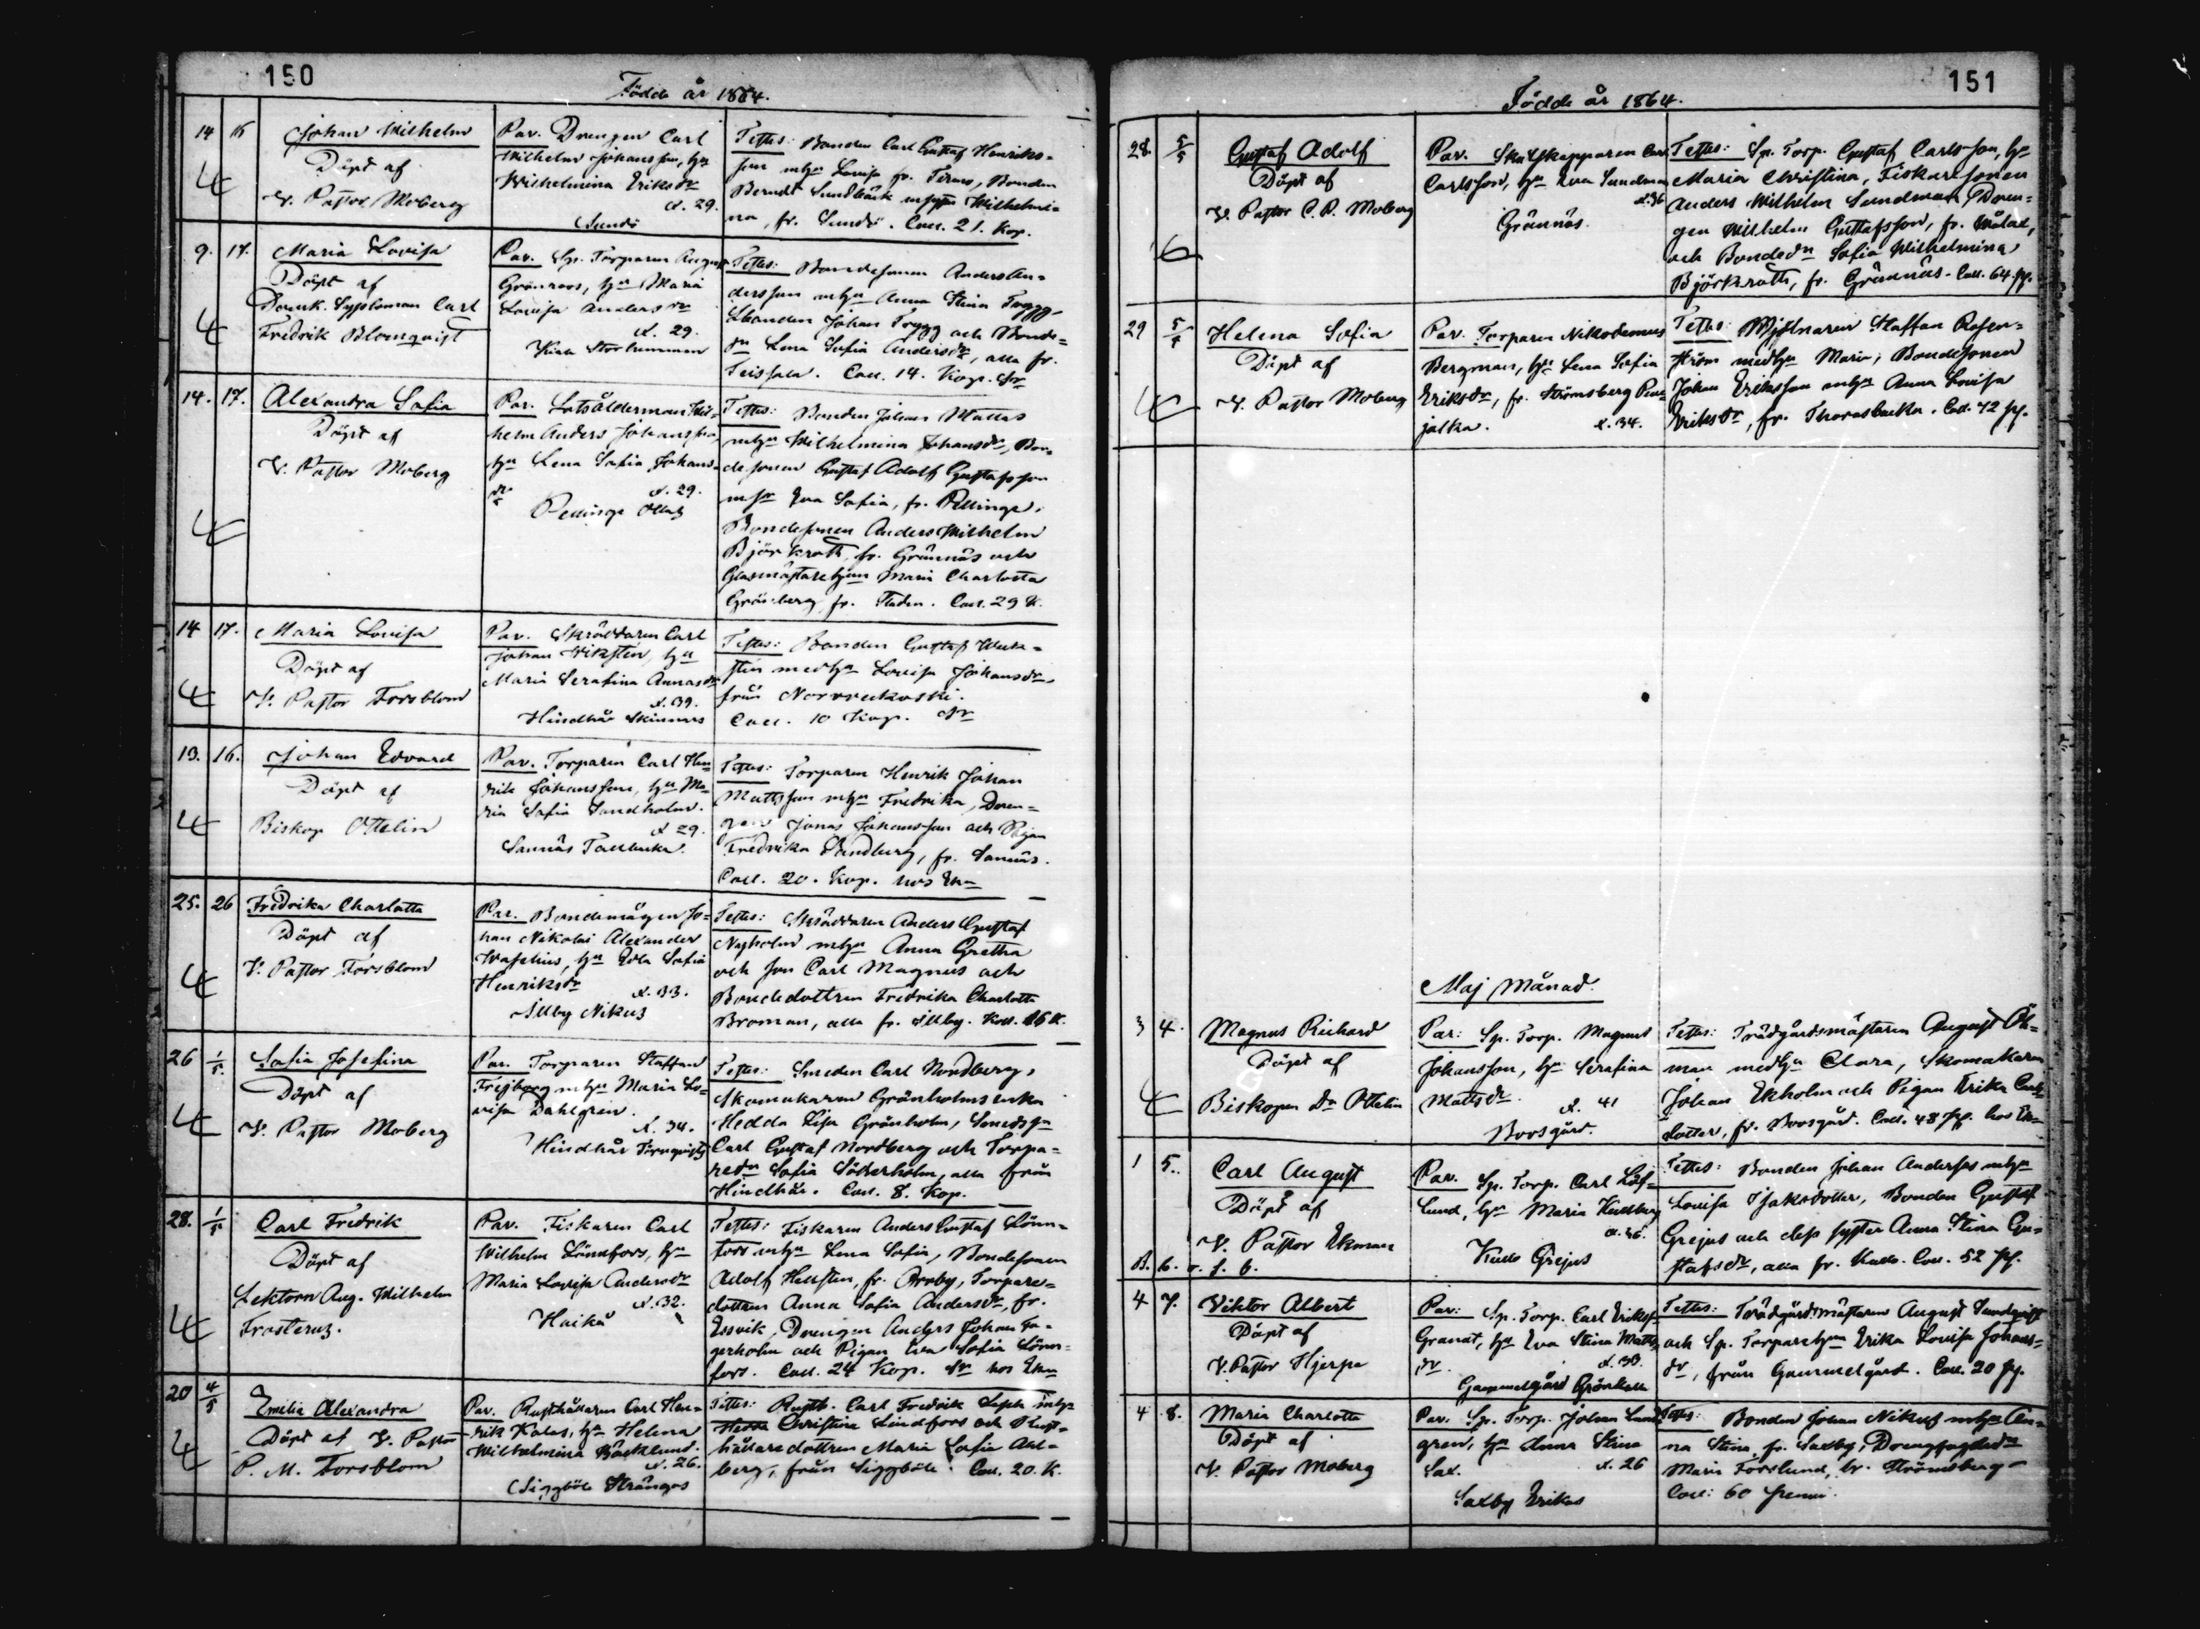 150
Födde år 1864.
14 16
Johan Wilhelm
Döpt af
V. Pastor Moberg
Par. Drengen Carl
Wilhelm Johansson, hu
Wilhelmina Eriksdr
å. 29.
Sundö
Testes: Bonden Carl Gustaf Henriks-
son mhu Lovisa fr. Tirmo, Bonden
Berndt Sundbäck mhu Wilhelmi-
na, fr. Sundö. Coll. 21. Kop.
9. 17.
Maria Lovisa
Döpt af
Domk. Sysloman Carl
Fredrik Blomqvist
Par. Sp. Torparen August
Grönroos, hu Maria
Lovisa Andersdr
å. 29.
Testes: Bondesonen Anders An-
dersson mhu Anna Stina Trygg,
bonden Johan Trygg och Bonde-
dr Lena Sofia Andersdr, alla fr.
Teissala. Coll. 14. Kop. Sr
14. 17.
Alexandra Sofia
Döpt af
V. Pastor Moberg
Par. Lotsålderman Wil-
helm Anders Johansson,
hu Lena Sofia Johans-
dr
å. 29.
Pellinge
Testes: Bonden Johan Mattas
mhu Wilhelmina Johansdr, Bon-
desonen Gustaf Adolf Gustafsson
Eva Sofia, fr. Pellinge,
Bondesonen Anders Wilhelm
Björkroth, fr. Grännäs och
Glasmästarehun Maria Charlotta
Grönberg, fr. Staden. Coll. 29 K.
14 17.
Maria Lovisa
Döpt af
V. Pastor Forsblom
Par. Skräddaren Carl
Johan Wikstén, hu
Maria Serafina Annasdr
å. 39.
Hindhår Skinnars
Testes: Bonden Gustaf
medhu Lovisa Johansdr,
från Norrveckoski.
Coll. 10 Kop. Sr
13. 16.
Johan Edvard
Döpt af
Biskop Ottelin
Par. Torparen Carl Hen
rik Johansson, hu Ma-
ria Sofia Sandholm.
å 29.
Sannäs Tallbacka.
Testes: Torparen Henrik Johan
Mattsson mhu Fredrika, Dren-
gen Jonas Johansson och Pigan
Fredrika Sandberg, fr. Sannäs.
Coll. 20. Kop. hos Ekm
25. 26
Fredrika Charlotta
Döpt af
V. Pastor Forsblom
Par. Bondemågen Jo-
han Nikolai Alexander
Wafelius, hu Edla Sofia
Henriksdr
å. 33.
Illby Nikus
Testes: Skräddaren Anders Gustaf
Nyholm mhu Anna Gretha
och son Carl Magnus och
Bondedottren Fredrika Charlotta
Broman, alla fr. Illby. Koll. 16 K.
26 1/5.
Sofia Josefina
Döpt af
V. Pastor Moberg
Par. Torparen Staffan
Frejborg mhu Maria Lo-
visa Dahlgren.
å. 34.
Hindhår Törnqvists
Testes: Smeden Carl Nordberg,
Skomakaren Grönholms enka
Hedda Lisa Grönholm, Smedsgn
Carl Gustaf Nordberg och Torpa-
redr Sofia Söderholm, alla från
Hindhår. Coll. 8. Kop.
28. 1/5
Carl Fredrik
Döpt af
Lektorn Aug. Wilhelm
Frosterus.
Par. Fiskaren Carl
Wilhelm Lönnfors, hu
Maria Lovisa Andersdr
å. 32.
Haikå
Testes: Fiskaren Anders Gustaf Lönn-
fors mhu Lena Sofia, Bondesonen
Adolf Hellsten, fr. Ameby, Torpare-
dottren Anna Sofia Andersdr, fr.
Essvik, Drengen Anders Johan Ja-
gerholm och Pigan Eva Sofia Lönn-
fors. Coll. 24 Kop. Sr hos Ekm
20 4/5
Emelia Alexandra
Döpt af V. Pastor
P. M. Forsblom
Par. Rusthållaren Carl Hen-
rik Kalas, hu Helena
Wilhelmina Bäcklund.
å. 26.
Siggböle Strängas
Testes: Rusth. Carl Fredrik mhu
Christina Lindfors och Rust-
hållaredottren Maria Sofia Ahl-
berg, från Siggböle. Coll. 20. K.
151
Födde år 1864.
28. 5/5
Gustaf Adolf
Döpt af
V. Pastor C. R. Moberg
Par. Skalskepparen Carl
Carlsson, hu Eva Sundman
å. 36
Grännäs.
Testes: Sp. Torp. Gustaf Carlsson, hu
Maria Christina, Fiskaresonen
Anders Wilhelm Sundman, Dren-
gen Wilhelm Gustafsson, fr. Wålax,
och Bondedr Sofia Wilhelmina
Björkroth, fr. Grännäs. Coll. 64 p.
29 5/5
Helena Sofia
Döpt af
V. Pastor Moberg
Par. Torparen Nikodemus
Bergman, hu Lena Sofia
Eriksdr, fr. Strömsberg Pen-
jatka.
å. 34.
Testes: Mjölnaren Staffan Rosen-
ström medhu Maria, Bondesonen
Johan Eriksson mhu Anna Lovisa
Eriksdr, fr. Thorasbacka. Coll. 72 p.
Maj Månad.
3 4.
Magnus Richard
Döpt af
Biskopen Dr Ottelin
Par: Sp. Torp. Magnus
Johansson, hu Serafina
Mattsdr.
å. 41
Boosgård.
Testes: Trädgårdsmästaren August Ök-
man medhu Clara, Skomakaren
Johan Ekholm och Pigan Erika Carls
dotter, fr. Boosgård. Coll. 48 p. hos Ekm
1 5.
Carl August
Döpt af
V. Pastor Ekman
B. 6. v. s. 6.
Par. Sp. Torp. Carl Löf-
lund, hu Maria Hindberg
å. 36.
Kullo Grejus
Testes: Bonden Johan Anderssos mhu
Lovisa Isaksdotter, Bonden Gustaf
Grejus och dess syster Anna Stina Gu-
stafsdr, alla fr. Kullo. Coll. 52 p.
4 7.
Viktor Albert
Döpt af
V. Pastor Hjerpe
Par: Sp. Torp. Carl Eriksf
Granat, hu Eva Stina Matts
dr.
å. 30.
Gammelgård Grönkulla
Testes: Trädgårdsmästaren August Sundqvist
och Sp. Torparehun Erika Lovisa Johans-
dr, från Gammelgård. Coll. 20 p.
4 8.
Maria Charlotta
Döpt af
V. Pastor Moberg
Par. Sp. Torp. Johan Lind
gren, hu Anna Stina
Sax.
å. 26
Saxby Erikas
Testes: Bonden Johan Nikus mhu An-
na Stina, fr. Saxby, Drengfogdedr
Maria Forslund, fr. Strömsberg
Coll: 60 penni.